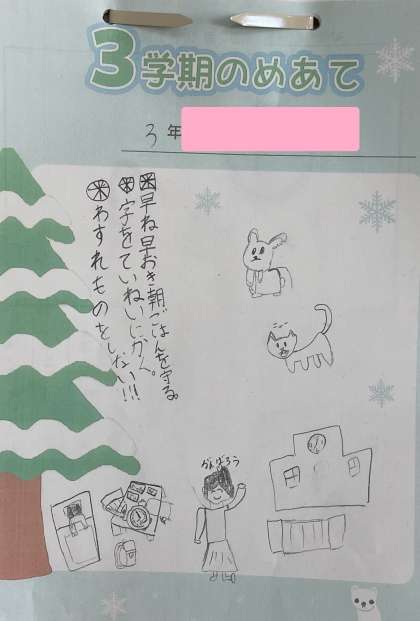 3学期のめあて
3年
早ね早おき朝ごはんを守る。
字をていねいにかく。
わすれものをしない!!!
がんばろう